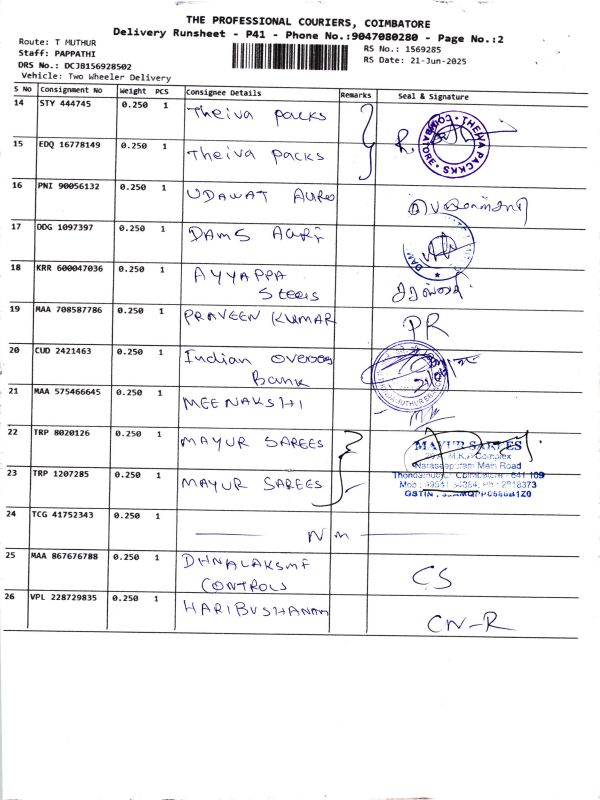 THE PROFESSIONAL COURIERS, COIMBATORE
Delivery Runsheet - P41 - Phone No.:9047080280 - Page No.:2
Route: T MUTHUR
Staff: PAPPATHI
DRS No.: DCJB156928502
Vehicle: Two Wheeler Delivery
RS No.: 1569285
RS Date: 21-Jun-2025
S No Consignment No Weight PCS Consignee Details Remarks Seal & Signature
14 STY 444745 0.250 1 Theiva packs
THEIVA PACKS COIMBATORE
15 EDQ 16778149 0.250 1 Theiva packs
16 PNI 90056132 0.250 1 UDAWAT AURO
17 DDG 1097397 0.250 1 DAMS AGRI
DAM
18 KRR 600047036 0.250 1 AYYAPPA
Steels
19 MAA 708587786 0.250 1 PRAVEEN KUMAR PR
20 CUD 2421463 0.250 1 Indian overseas
Bank
21 MAA 575466645 0.250 1 MEENAKSHI
22 TRP 8020126 0.250 1 MAYUR SAREES
MAYUR SAREES
M.K.P Complex
Naraseepuram Main Road
23 TRP 1207285 0.250 1 MAYUR SAREES
Coimbatore - 641 109
GSTIN :
24 TCG 41752343 0.250 1 N m
25 MAA 867676788 0.250 1 DHNALAKSMI
CONTROLS CS
26 VPL 228729835 0.250 1 HARIBUSHANAM
CN-R